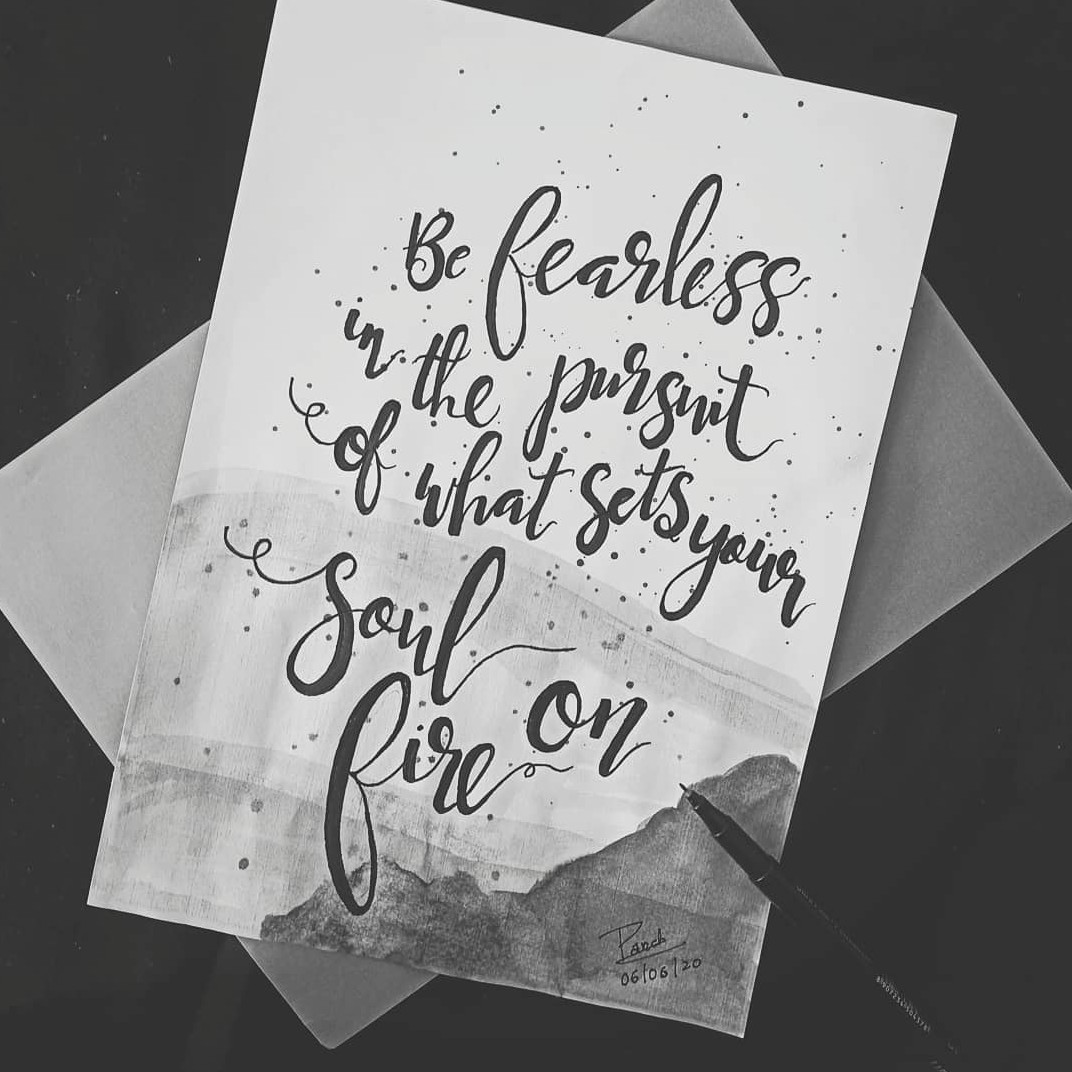 Be fearless
in the pursuit
of what sets your
soul on
fire
06/06/20